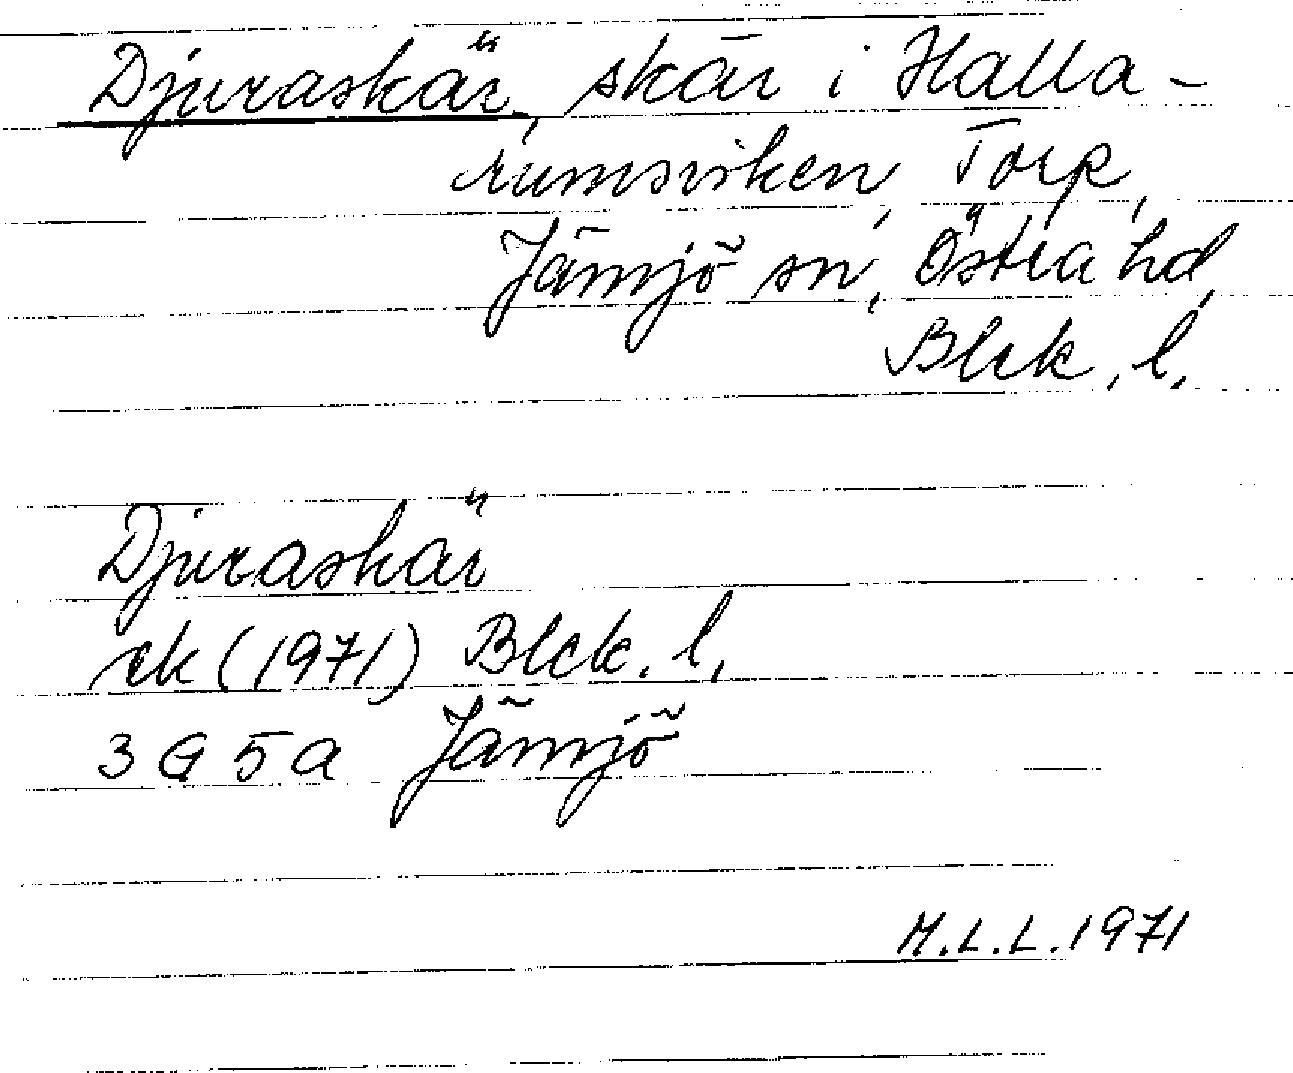 Djuraskär, skär i Halla-
rumsviken, Torp,
Jämjö sn, Östra hd,
Blek. l.
Djuraskär
ek (1971) Blek. l.
3 G 5 a Jämjö
M.L.L. 1971